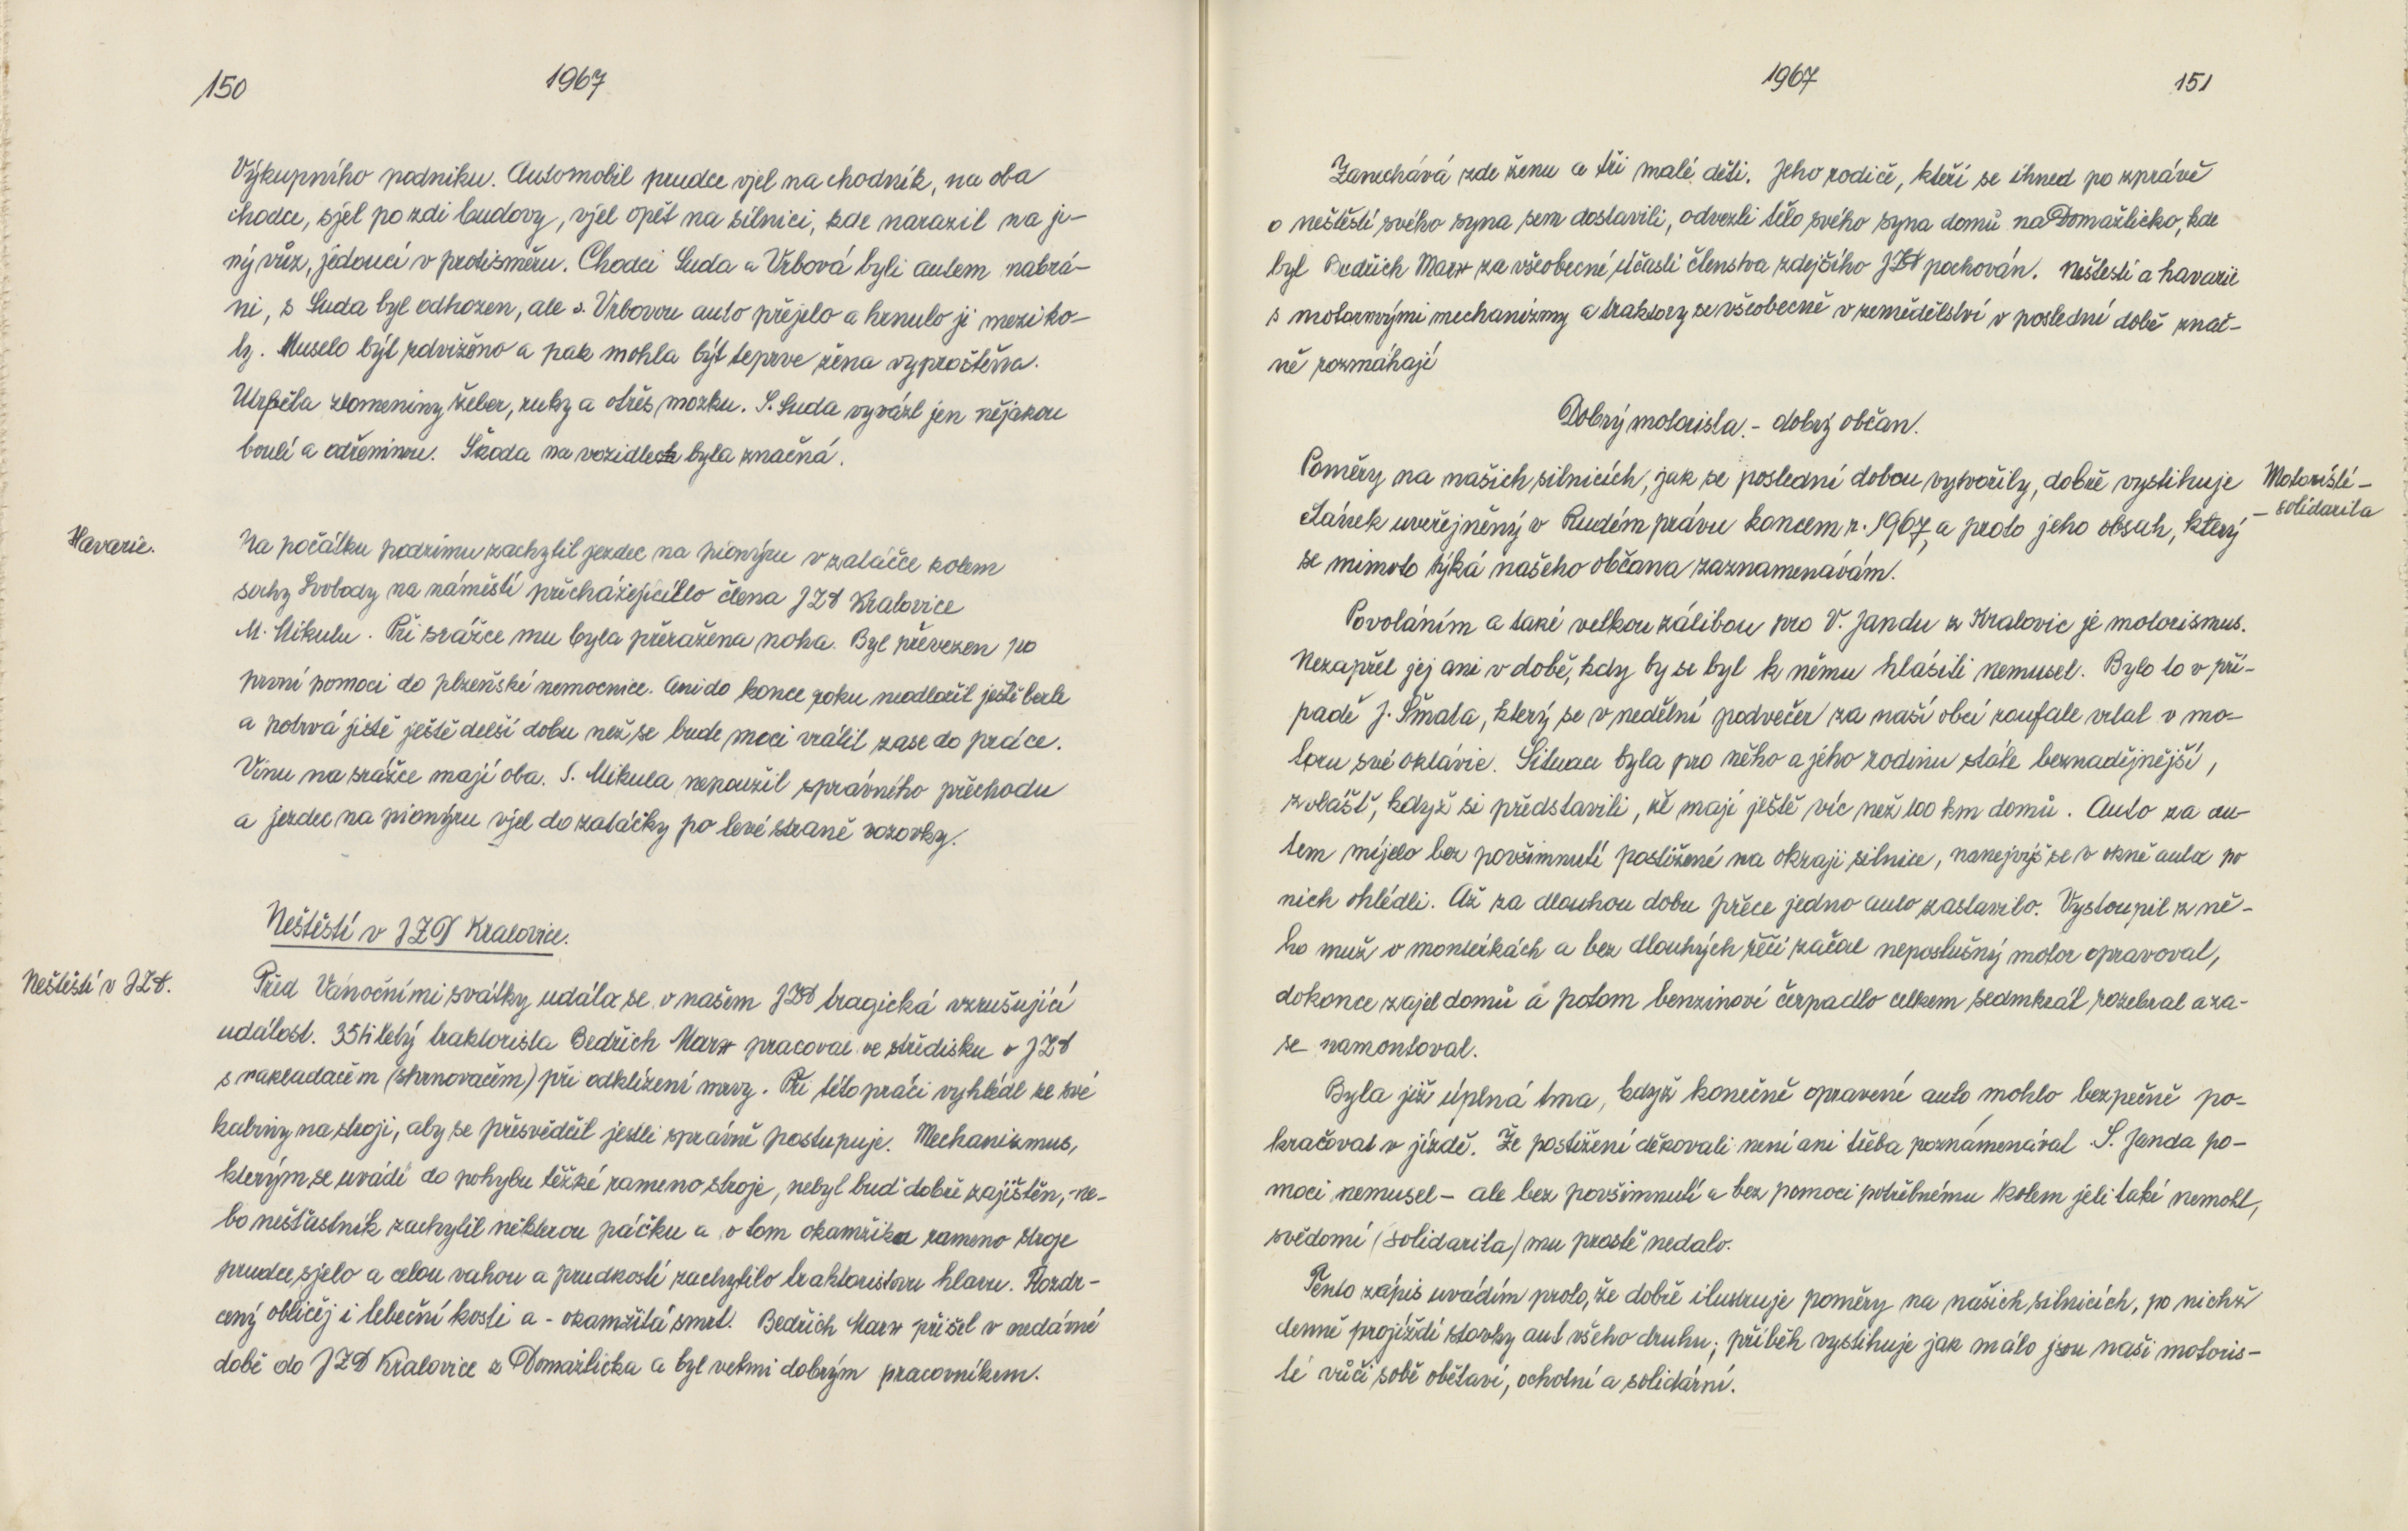 150
1967
Výkupního podniku. Automobil prudce vjel na chodník, na oba
chodce, sjel po zdi budovy, vjel opět na silnici, kde narazil na ji-
ný vůz, jedoucí v protisměru. Chodci Suda a Vrbová byli autem nabrá-
ni, s Suda byl odhozen, ale s. Vrbovou auto přejelo a hrnulo ji mezi ko-
ly. Muselo být zdviženo a pak mohla být teprve žena vyproštěna.
Utrpěla zlomeniny žeber, ruky a otřes mozku. S. Suda vyvázl jen nějakou
boulí a odřeninou. Škoda na vozidlech byla značná.
Havarie.
Na počátku podzimu zachytil jezdec na pionýru v zatáčce kolem
sochy Svobody na náměstí přicházejícího člena JZD Kralovice
M. Mikulu. Při srážce mu byla přeražena noha. Byl převezen po
první pomoci do plzeňské nemocnice. Ani do konce roku neodložil ještě berle
a potrvá jistě ještě delší dobu než se bude moci vrátit zase do práce.
Vinu na srážce mají oba. S. Mikula nepoužil správného přechodu
a jezdec na pionýru vjel do zatáčky po levé straně vozovky.
Neštěstí v JZD Kralovice.
Neštěstí v JZD.
Před Vánočními svátky udála se v našem JZD tragická vzrušující
událost. 35tiletý traktorista Bedřich Marx pracoval ve středisku v JZD
s nakladačem (shrnovačem) při odklízení mrvy. Při této práci vyhlédl ze své
kabiny na stroji, aby se přesvědčil jestli správně postupuje. Mechanizmus,
kterým se uvádí do pohybu těžké rameno stroje, nebyl buď dobře zajištěn, ne-
bo nešťastník zachytil některou páčku a v tom okamžiku rameno stroje
prudce sjelo a celou vahou a prudkostí zachytilo traktoristovu hlavu. Rozdr-
cený obličej i lebeční kosti a - okamžitá smrt. Bedřich Marx přišel v nedávné
době do JZD Kralovice z Domažlicka a byl velmi dobrým pracovníkem.
1967
151
Zanechává zde ženu a tři malé děti. Jeho rodiče, kteří se ihned po zprávě
o neštěstí svého syna sem dostavili, odvezli tělo svého syna domů na Domažlicko, kde
byl Bedřich Marx za všeobecné účasti členstva zdejšího JZD pochován. Neštestí a havarie
s motorovými mechanizmy a traktory se všeobecně v zemědělství v poslední době znač-
ně rozmáhají
Dobrý motorista. - dobrý občan.
Poměry na našich silnicích, jak se poslední dobou vytvořily, dobře vystihuje
článek uveřejněný v Rudém právu koncem r. 1967, a proto jeho obsah, který
se mimoto týká našeho občana zaznamenávám.
Motoristi -
- solidarita
Povoláním a také velkou zálibou pro V. Jandu z Kralovic je motorismus.
Nezapřel jej ani v době, kdy by se byl k němu hlásiti nemusel. Bylo to v pří-
padě J. Šmata, který se v nedělní podvečer za naší obcí zoufale vrtal v mo-
toru své oktávie. Situace byla pro něho a jeho rodinu stále beznadějnější,
zvláště, když si představili, že mají ještě víc než 100 km domů. Auto za au-
tem míjelo bez povšimnutí postižené na okraji silnice, nanejvýš se v okně auta po
nich ohlédli. Až za dlouhou dobu přece jedno auto zastavilo. Vystoupil z ně-
ho muž v montérkách a bez dlouhých řečí začal neposlušný motor opravovat,
dokonce zajel domů a potom benzinové čerpadlo celkem sedmkrát rozebral a za-
se namontoval.
Byla již úplná tma, když konečně opravené auto mohlo bezpečně po-
kračovat v jízdě. Že postižení děkovali není ani třeba poznamenávat. S. Janda po-
moci nemusel - ale bez povšimnutí a bez pomoci potřebnému kolem jeti také nemohl,
svědomí (solidarita) mu prostě nedalo.
Tento zápis uvádím proto, že dobře ilustruje poměry na našich silnicích, po nichž
denně projíždí stovky aut všeho druhu; příběh vystihuje jak málo jsou naši motoris-
té vůči sobě obětaví, ochotní a solidární.